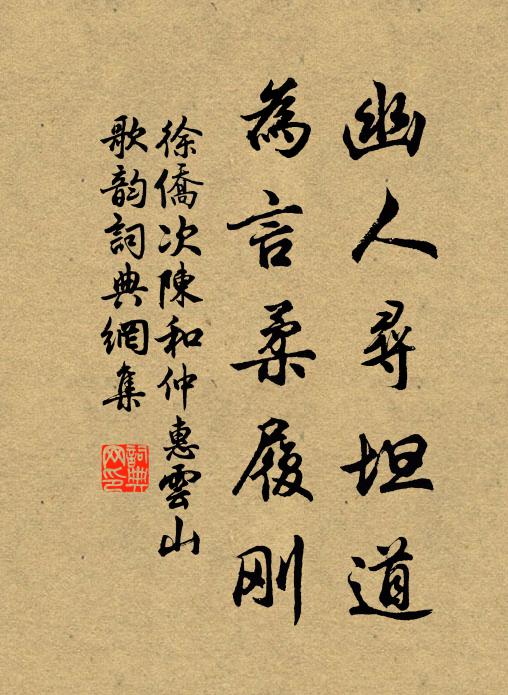 幽人尋坦道
為言柔履刚
徐僑次陳和仲惠雲山
歌韵詞典網集
詞典
网印